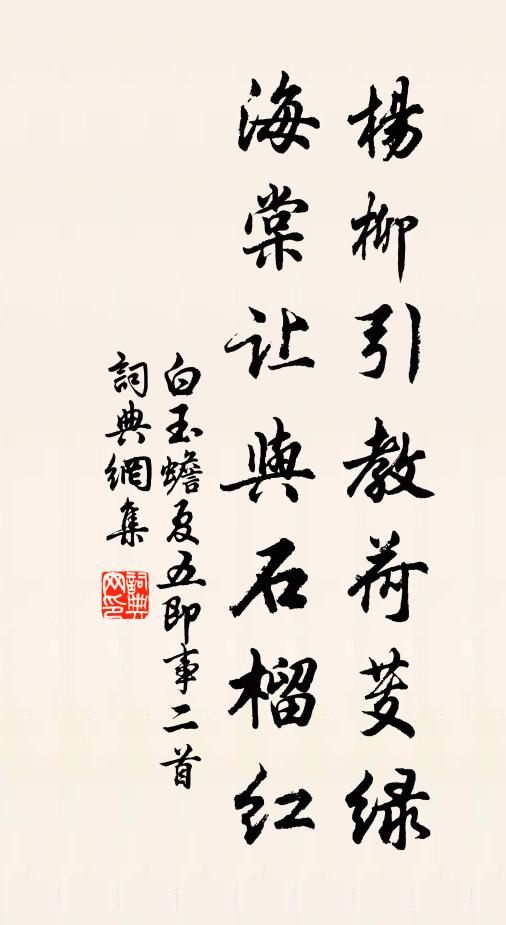 楊柳引教荷芰绿
海棠让與石榴红
白玉蟾夏五即事二首
詞典網集
詞典網印